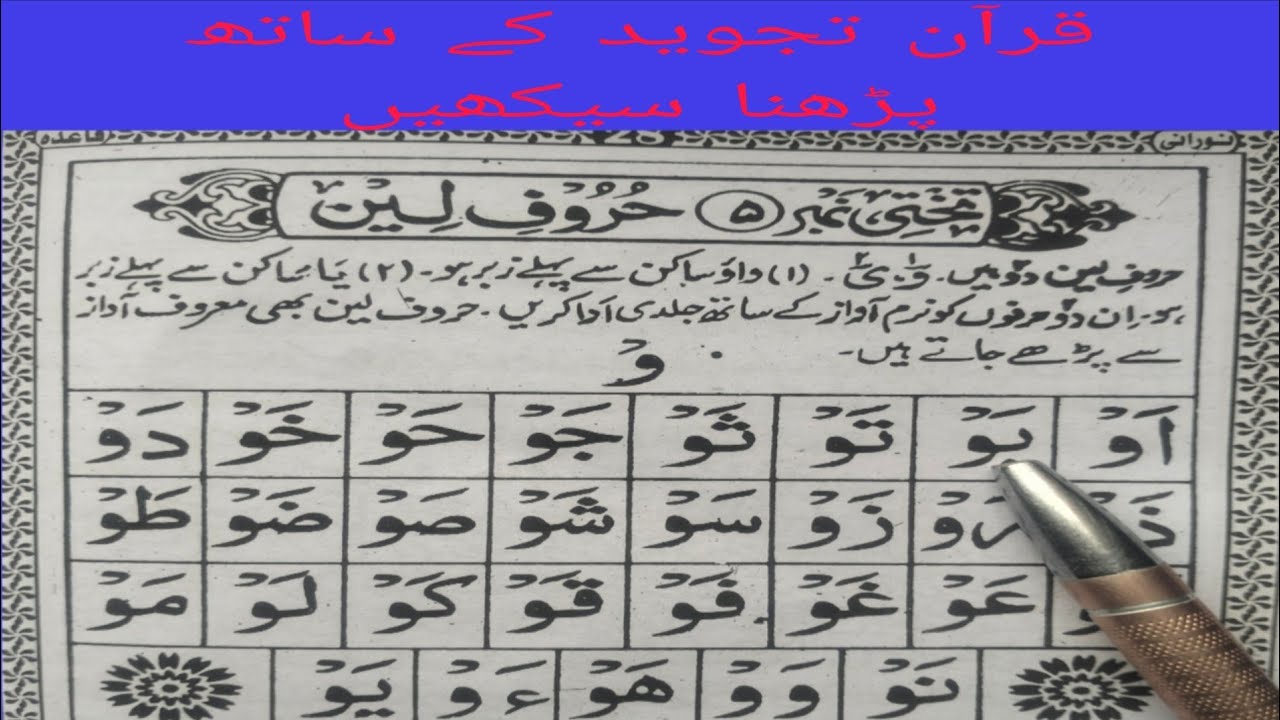 قرآن تجوید کے ساتھ
پڑھنا سیکھیں
نورانی
قاعدہ
تختی نمبر ۵ حُرُوْفِ لِیْن
حروفِ لین دوْ ہیں۔ وْ، یْ۔ (۱) واؤ ساکن سے پہلے زبر ہو۔ (۲) یَا سَاکن سے پہلے زبر
ہو۔ ان دوْ حرفوں کو نرم آواز کے ساتھ جلدی اَدا کریں۔ حروف لین بھی معروف آواز
سے پڑھے جاتے ہیں۔
وْ
اَوْ بَوْ تَوْ ثَوْ جَوْ حَوْ خَوْ دَوْ
رَوْ زَوْ سَوْ شَوْ صَوْ ضَوْ طَوْ
عَوْ غَوْ فَوْ قَوْ کَوْ لَوْ مَوْ
نَوْ وَوْ هَوْ ءَوْ یَوْ